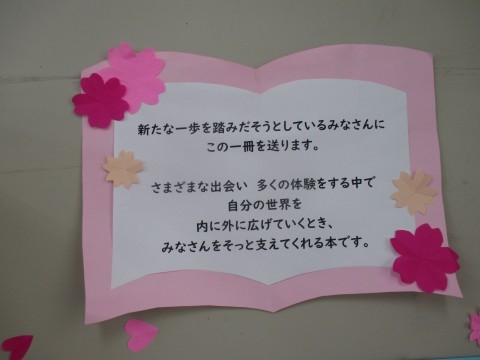 新たな一歩を踏みだそうとしているみなさんに
この一冊を送ります。
さまざまな出会い 多くの体験をする中で
自分の世界を
内に外に広げていくとき、
みなさんをそっと支えてくれる本です。